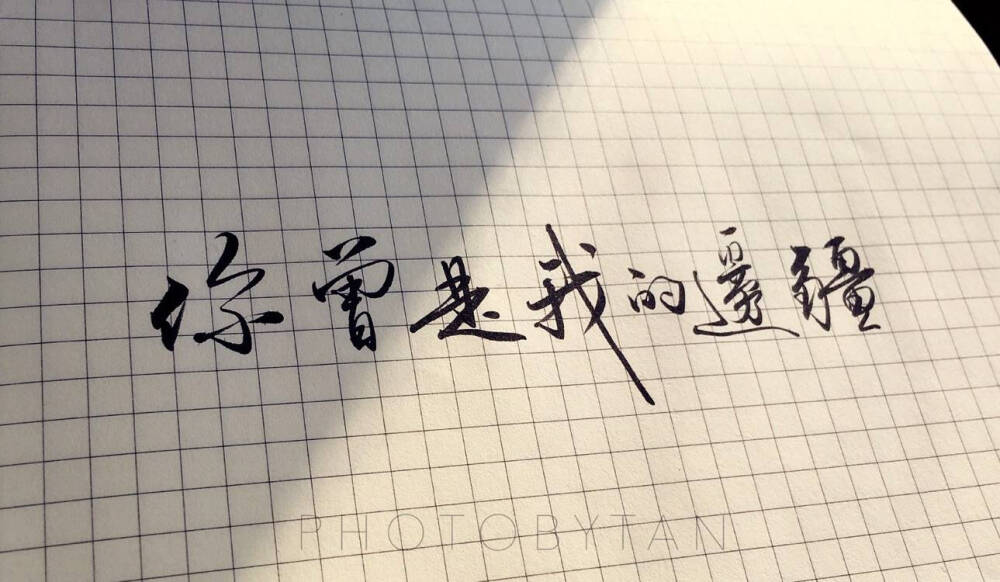 你曾是我的邊疆
PHOTOBYTAN